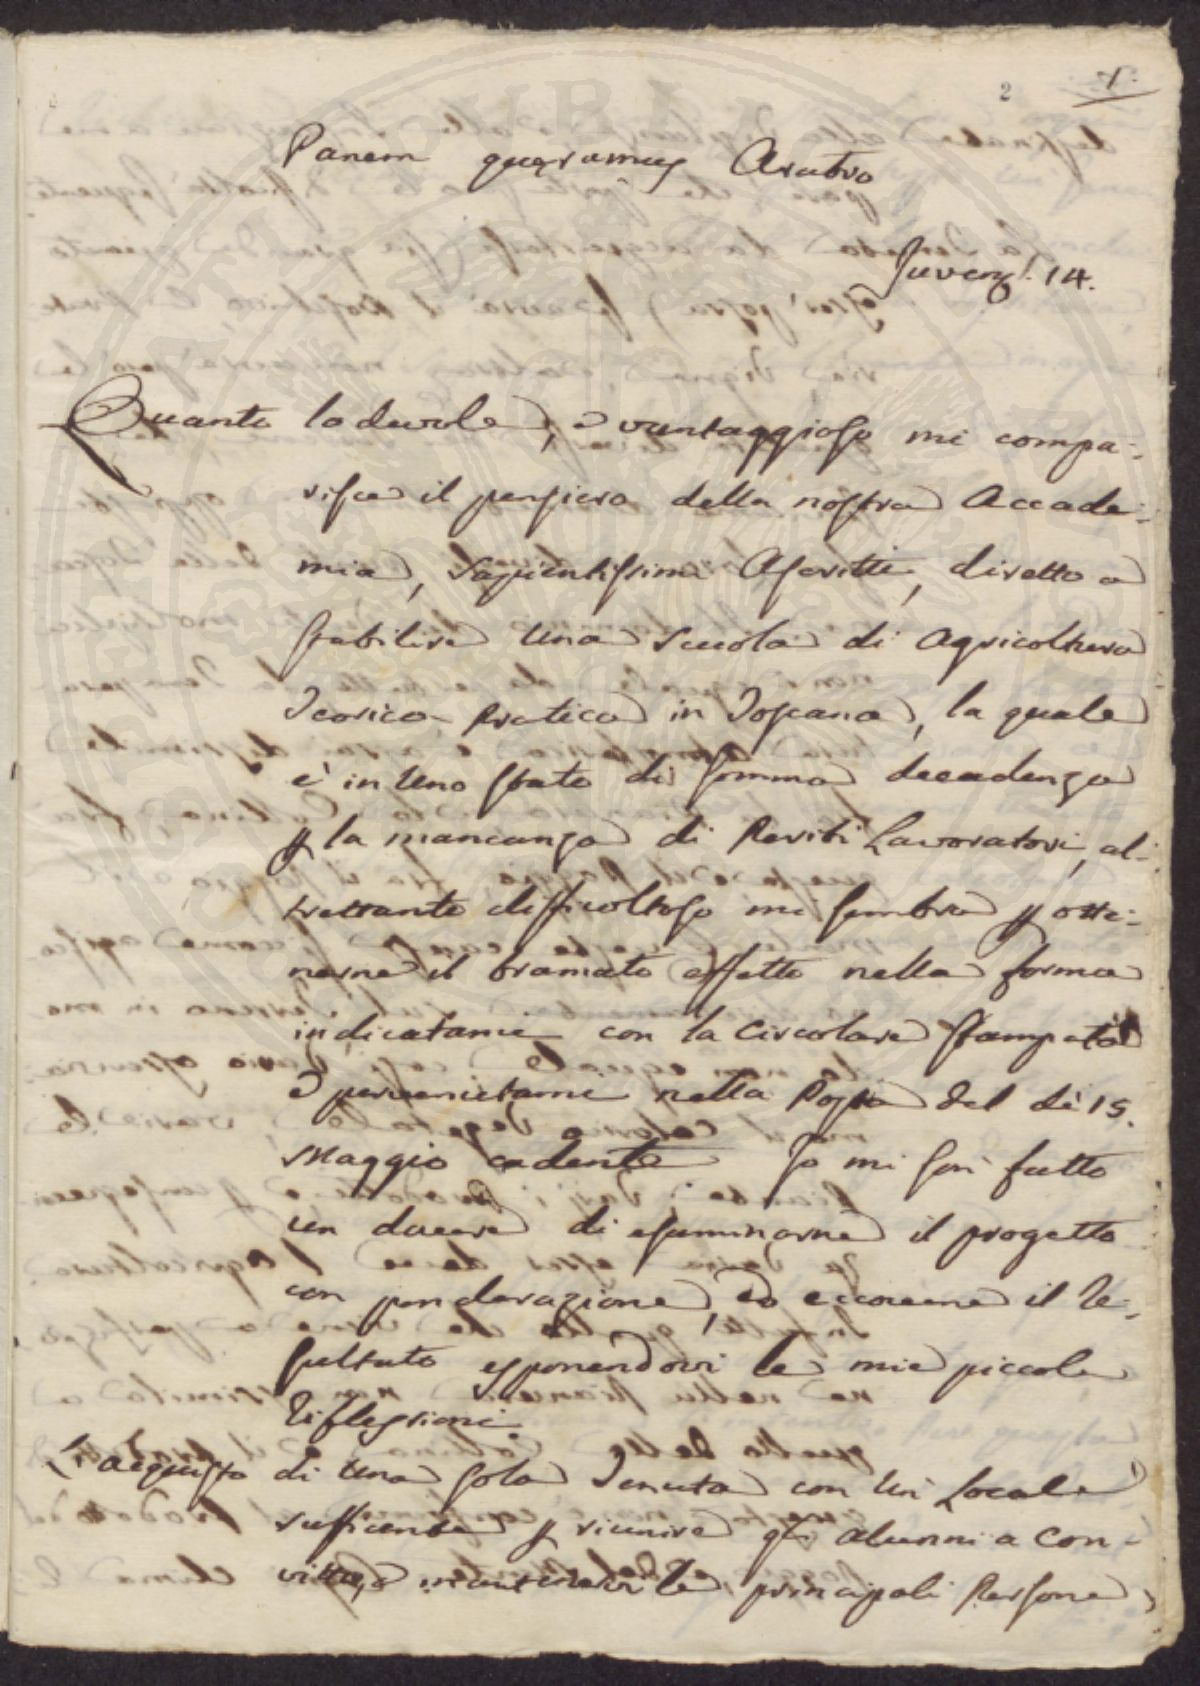 2 1.
Panem quęramus Aratro
Juven. 14.
Quanto lodevole, e vantaggioso mi compa-
risce il pensiero della nostra Accade-
mia, Sapientissimi Ascritti, diretto a
stabilire una Scuola di Agricoltura
Teorico-Pratica in Toscana, la quale
è in uno stato di somma decadenza
p la mancanza di Periti Lavoratori, al-
trettanto difficoltoso mi sembra p otte-
nerne il bramato effetto nella forma
indicatami con la Circolare stampata
e pervenutami nella Posta del dì 15.
Maggio cadente Io mi son fatto
un dovere di esaminarne il progetto
con ponderazione, ed eccovene il re-
sultato esponendovi le mie piccole
riflessioni
L'acquisto di una sola Tenuta con un Locale
sufficente p riunire gli alunni a con-
vitto, e mantenervi le principali Persone,